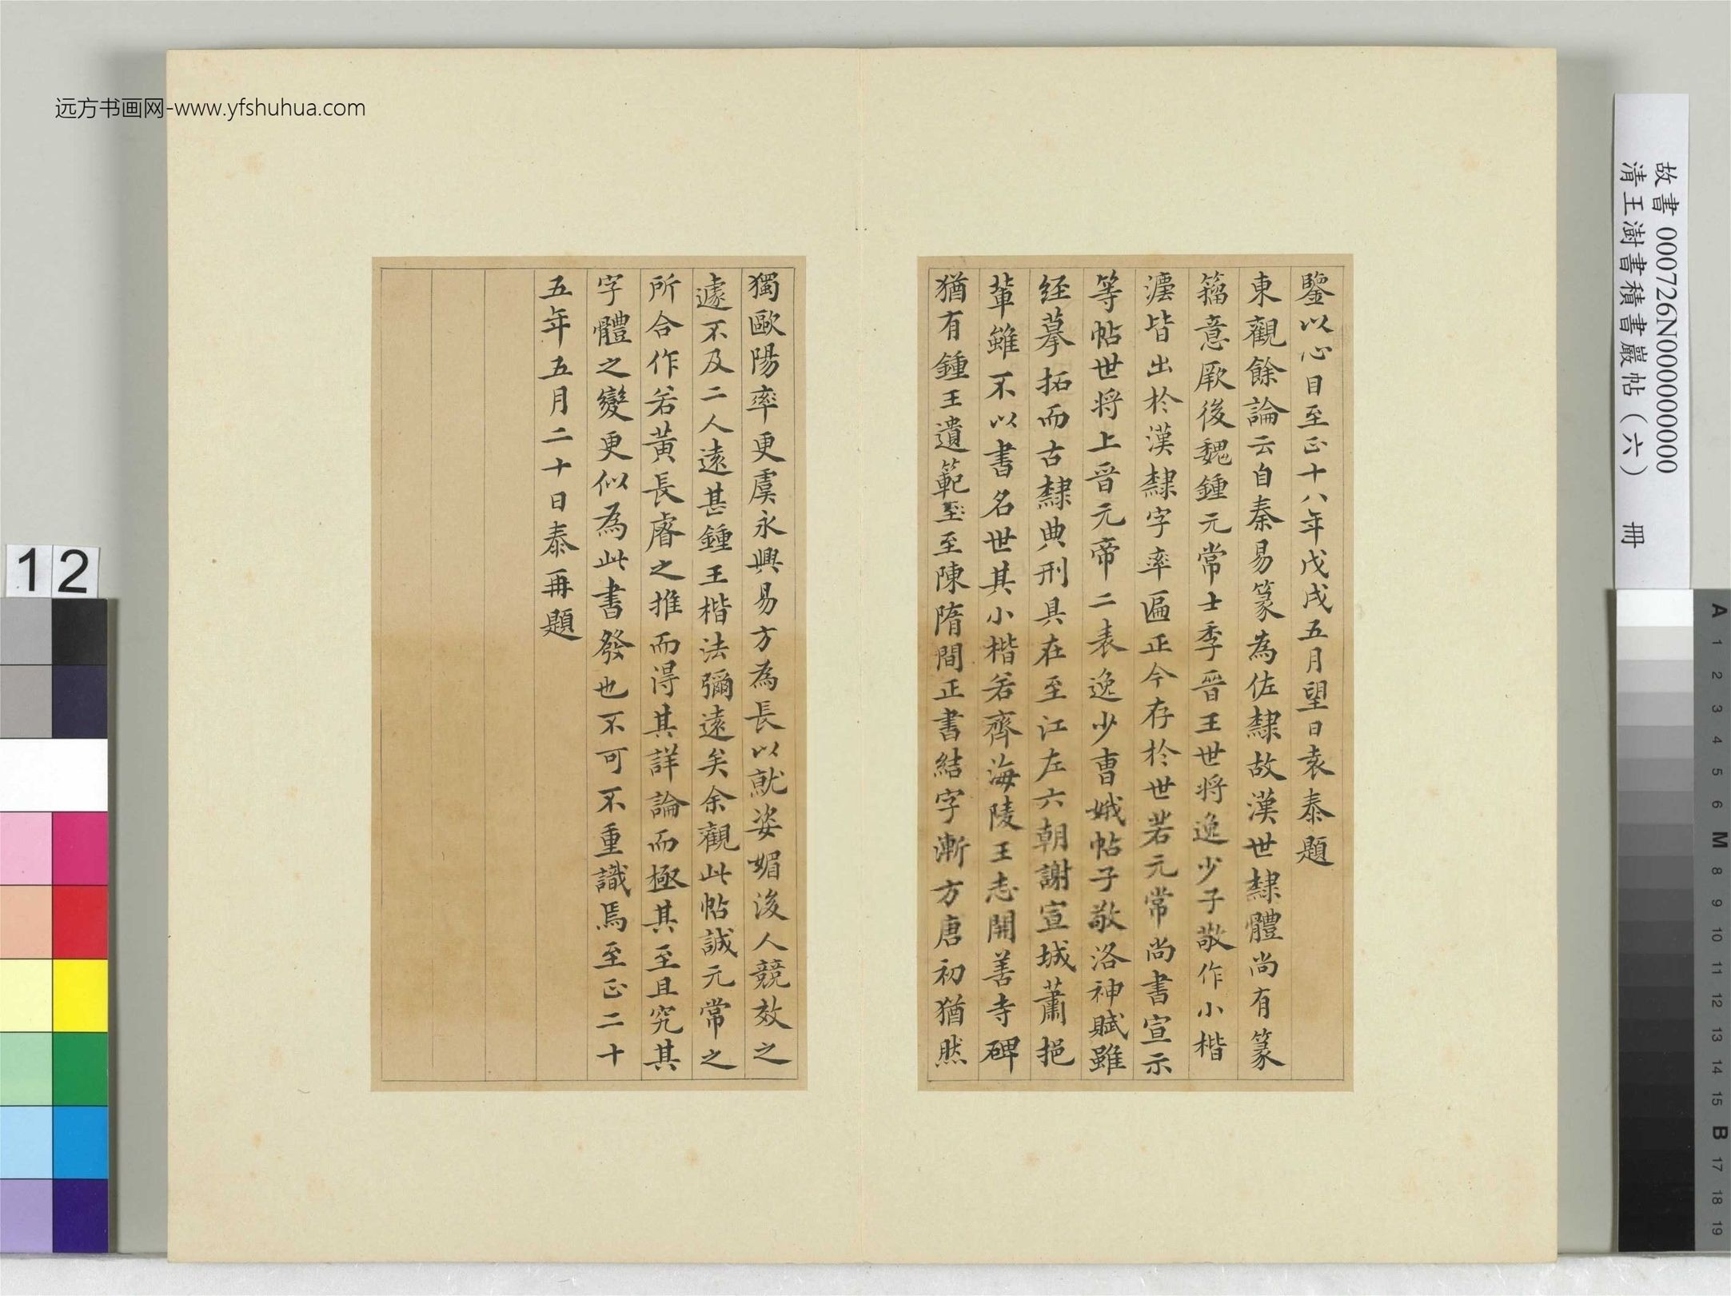 远方书画网-www.yfshuhua.com
故書 000726N000000000
清王澍書積書巖帖（六） 冊
鑒以心目至正十八年戊戌五月望日袁泰題
東觀餘論云自秦易篆為佐隸故漢世隸體尚有篆
籀意厥後魏鍾元常士季晉王世將逸少子敬作小楷
灋皆出於漢隸字率匾正今存於世若元常尚書宣示
等帖世將上晉元帝二表逸少曹娥帖子敬洛神賦雖
経摹拓而古隸典刑具在至江左六朝謝宣城蕭挹
輩雖不以書名世其小楷若齊海陵王志開善寺碑
猶有鍾王遺範至至陳隋間正書結字漸方唐初猶然
獨歐陽率更虞永興易方為長以就姿媚後人競效之
遽不及二人遠甚鍾王楷法彌遠矣余觀此帖誠元常之
所合作若黃長睿之推而得其詳論而極其至且究其
字體之變更似為此書發也不可不重識焉至正二十
五年五月二十日泰再題
12
A
1
2
3
4
5
6
M
8
9
10
11
12
13
14
15
B
17
18
19